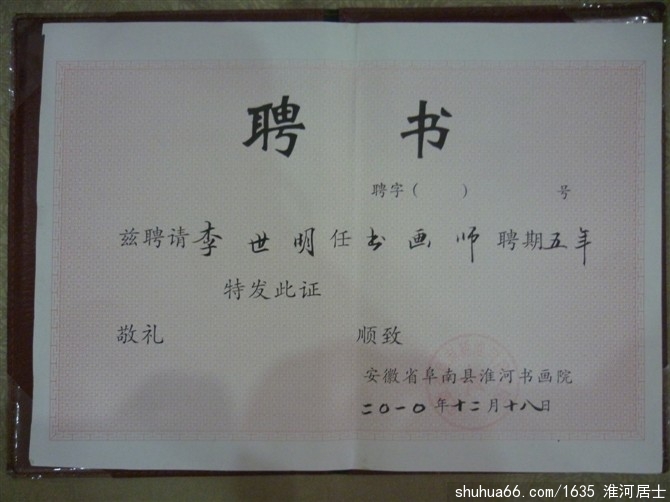 聘 书
聘字（ ） 号
兹聘请李世明任书画师聘期五年
特发此证
敬礼 顺致
安徽省阜南县淮河书画院
二〇一〇年十二月十八日
shuhua66.com/1635 淮河居士